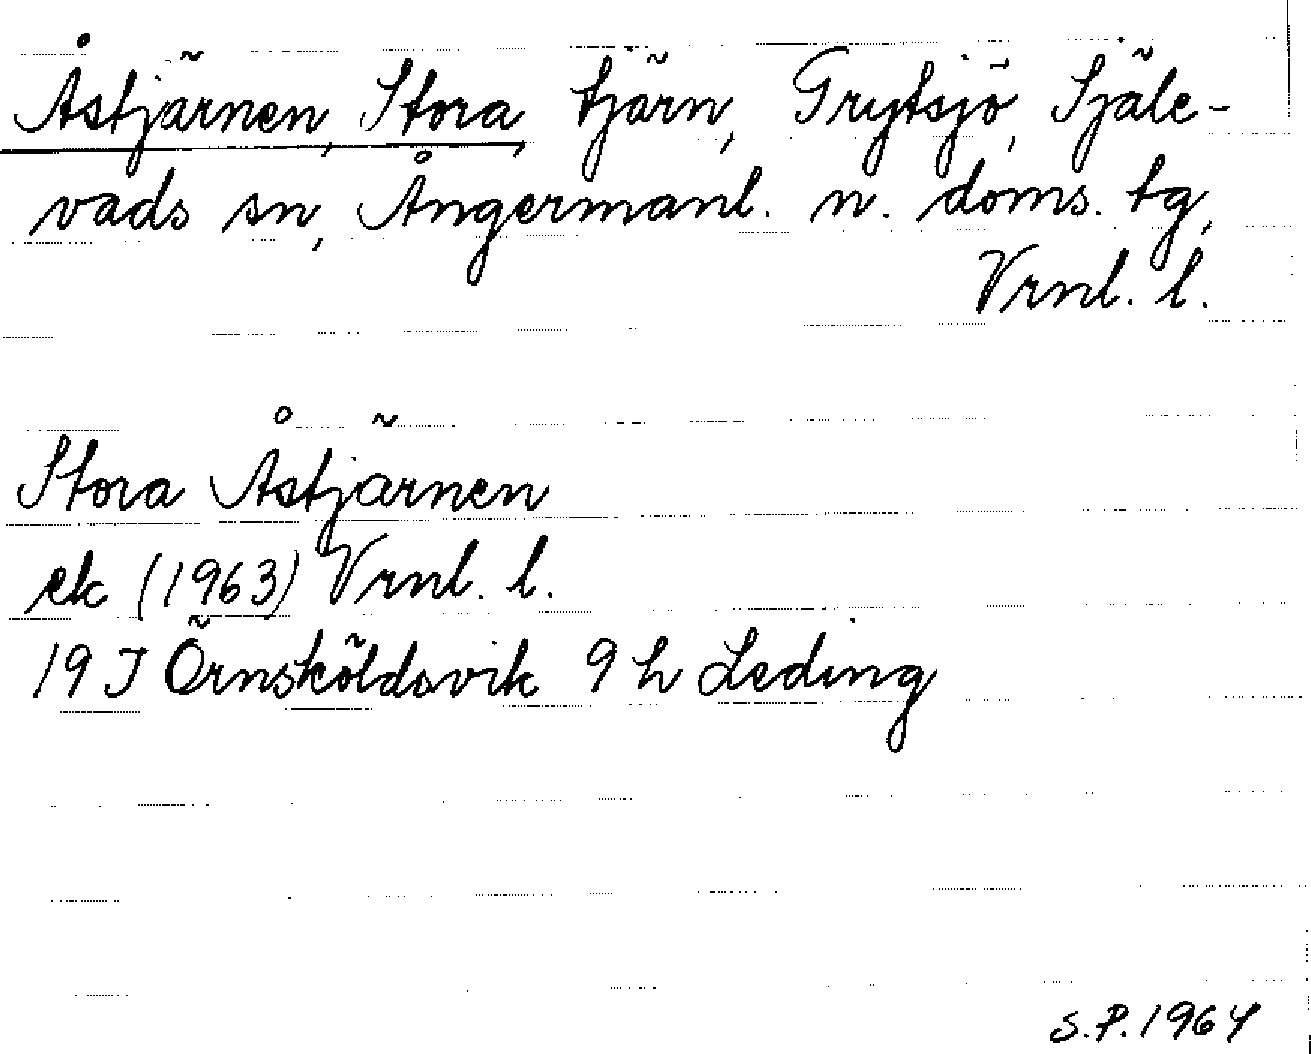 Åstjärnen, Stora, tjärn, Grytsjö, Själe-
vads sn, Ångermanl. n. doms. tg,
Vrnl. l.
Stora Åstjärnen
ek (1963) Vrnl. l.
19 J Örnsköldsvik 9 h Leding
S.P. 1964